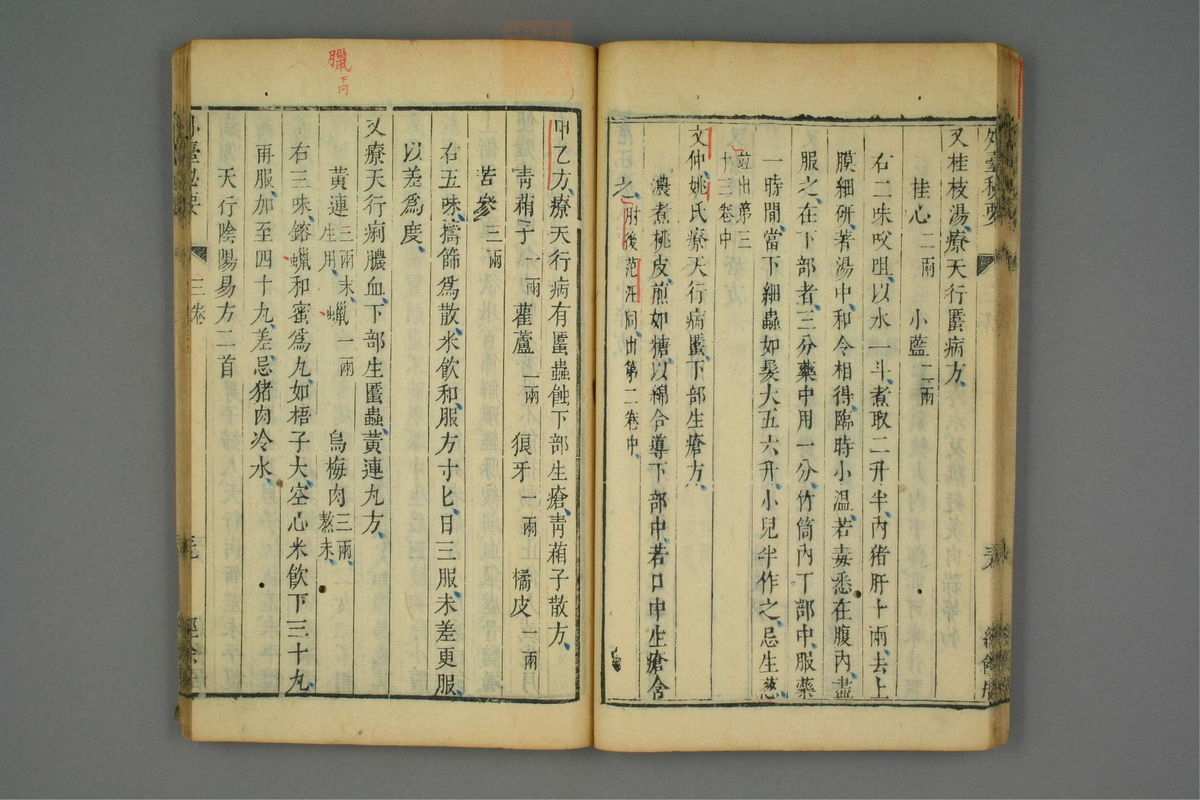 外臺秘要
又桂枝湯療天行䘌病方
桂心二兩 小藍二兩
右二味㕮咀以水一斗煮取二升半內猪肝十兩去上
膜細研著湯中和令相得臨時小溫若毒悉在腹內盡
服之在下部者三分藥中用一分竹筒內下部中服藥
一時間當下細蟲如髮大五六升小兒半作之忌生葱
並出第三
十三卷中
文仲姚氏療天行病䘌下部生瘡方
濃煮桃皮煎如糖以綿合導下部中若口中生瘡含
之肘後范汪同出第二卷中
甲乙方療天行病有䘌蟲蝕下部生瘡青葙子散方
青葙子一兩 雚蘆一兩 狼牙一兩 橘皮一兩
苦參三兩
右五味擣篩爲散米飲和服方寸匕日三服未差更服
以差爲度
又療天行痢膿血下部生䘌蟲黃連丸方
黃連三兩末生用 蠟一兩 烏梅肉三兩熬末
右三味鎔蠟和蜜爲丸如梧子大空心米飲下三十丸
再服加至四十丸差忌猪肉冷水
天行陰陽易方二首
外臺秘要 三卷
經餘
臘
下同